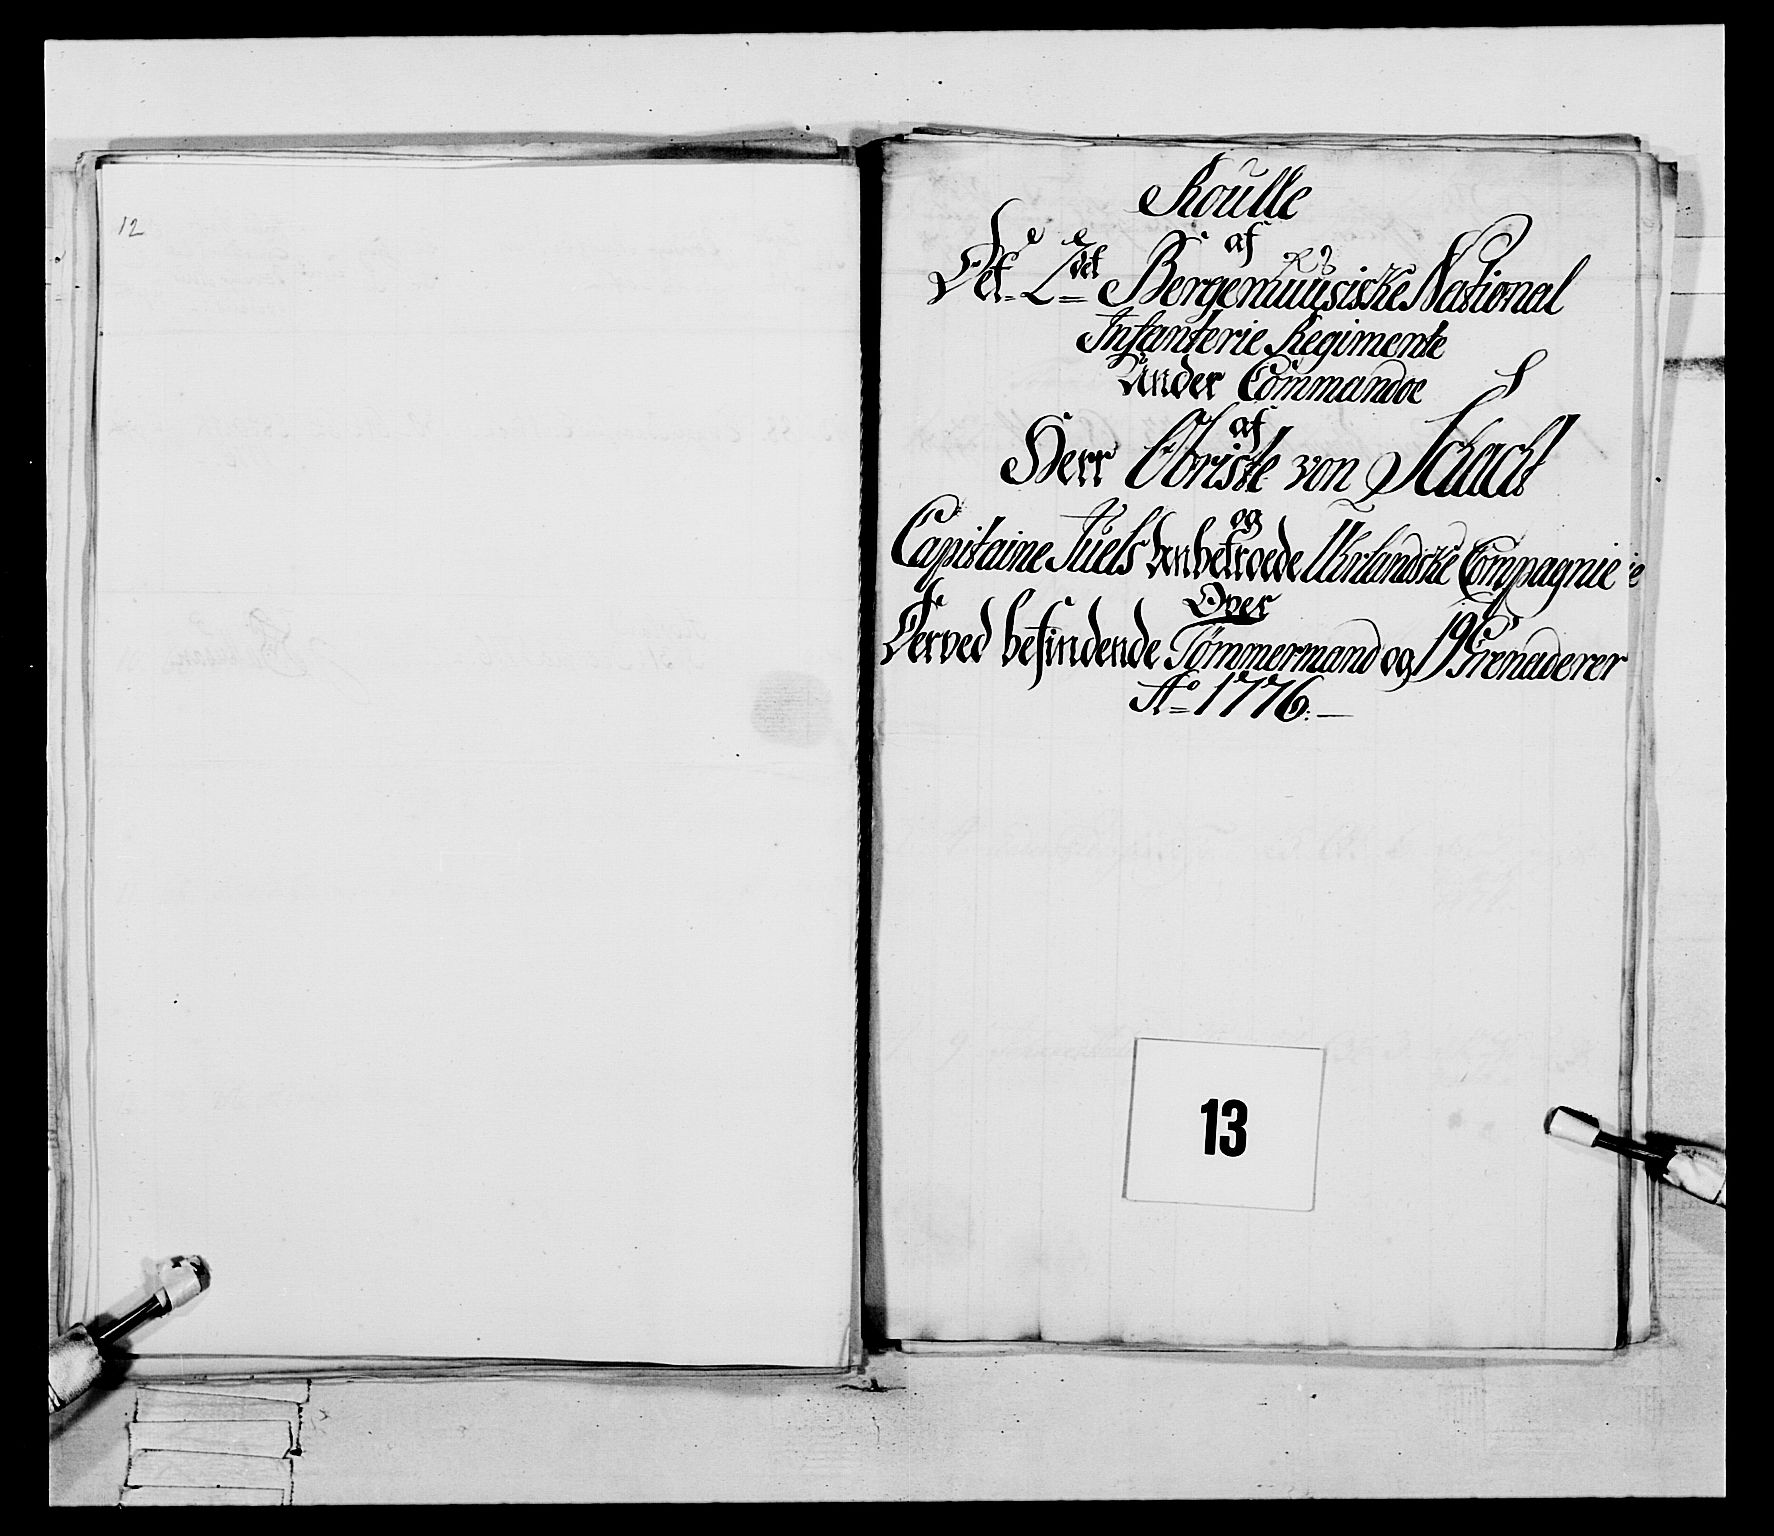 12
Roulle
af
Det 2det Bergenhuusiske National
Infanterie Regimente
Under Commandoe
af
Herr Obriste von Schacht
og
Capitaine Juels Anbetroede Uhrlandske Compagnie
Over
Derved befindende Tømmermand og 19 Grenaderer
Ao 1776.
13